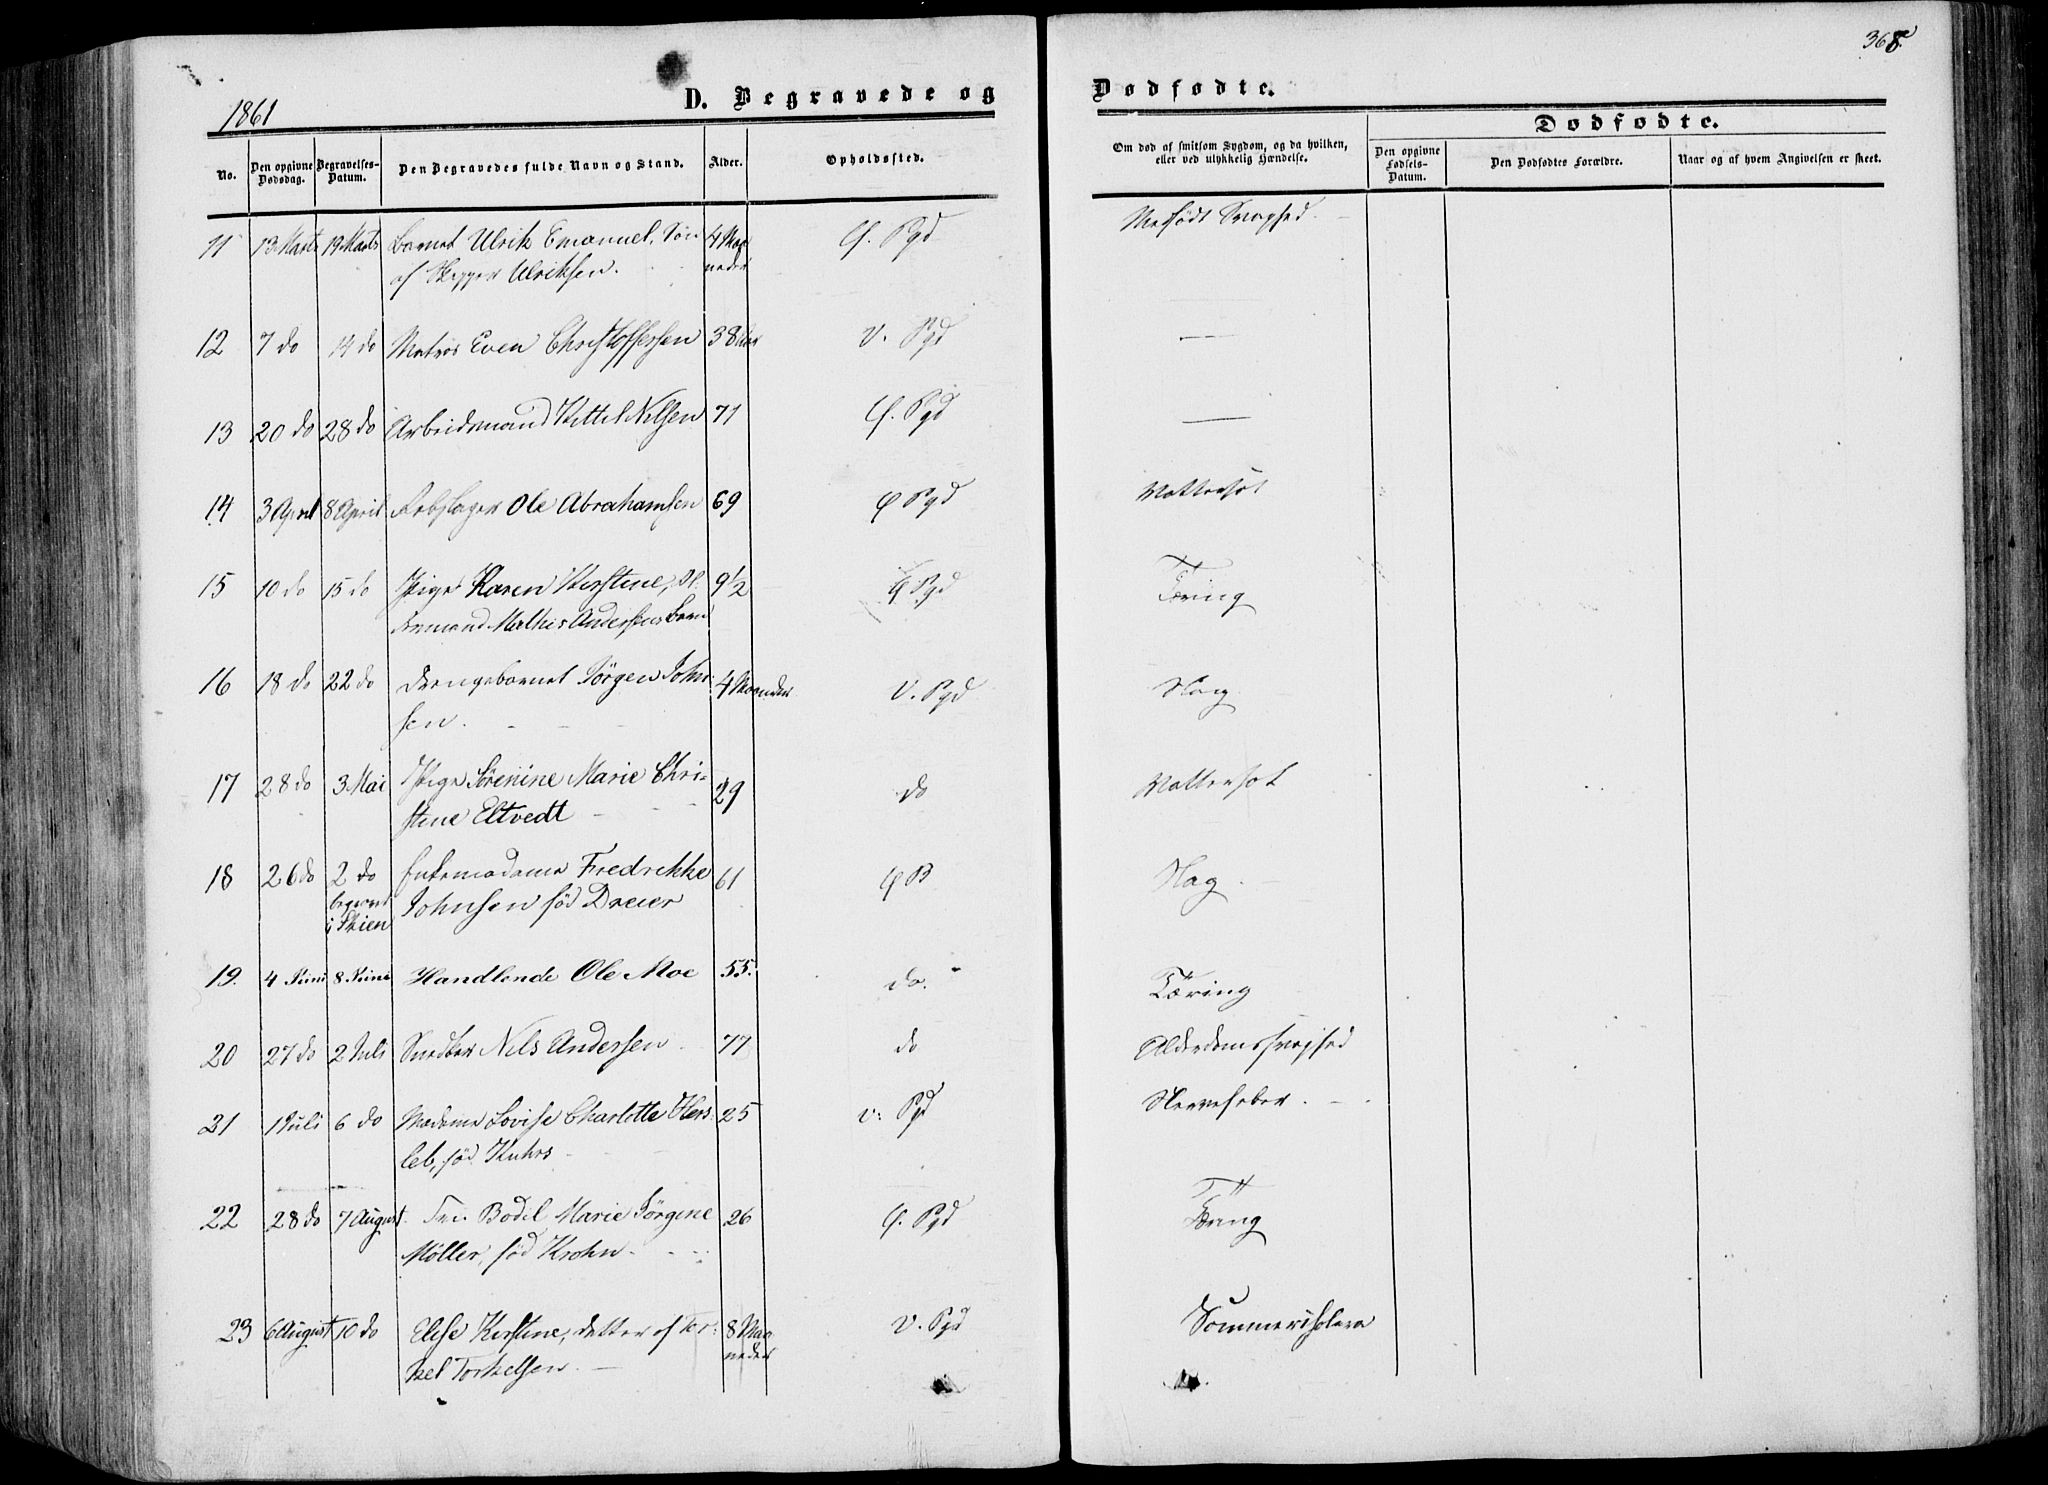 368
1861
D. Begravede og
Dødfødte.
No.
Den opgivne Dødsdag.
Begravelses-Datum.
Den Begravedes fulde Navn og Stand.
Alder.
Opholdssted.
Om død af smitsom Sygdom, og da hvilken, eller ved ulykkelig Hændelse.
Dødfødte.
Den opgivne Fødsels-Datum.
Den Dødfødtes Forældre.
Naar og af hvem Angivelsen er skeet.
11 13 Marts 19 Marts Barnet Ulrik Emanuel, Søn 4 Maa Pgd Medfødt Svaghed
af Skipper Ulriksen. neder
12 7 do 14 do Matros Even Christoffersen 38 Aar V. Pgd —
13 20 do 28 do Arbeidsmand Kittil Nilsen 71 Pgd —
14 3 April 8 April Rebslager Ole Abrahamsen 69 Pgd Vattersot
15 10 do 15 do Pige Karen Kirstine, 9½ Pgd Tæring
Mathis Andersens Barn
16 18 do 22 do Drengebarnet Jørgen John- 4 Maaneder V. Pgd Slag
sen.
17 28 do 3 Mai Pige Sørenine Marie Chri- 29 do Vattersot
stine Eltvedt
18 26 do 2 do Enkemadame Fredrikke 61 B Slag
begravet Johnsen fød Dreier
i Skien
19. 4 Juni 8 Juni Handlende Ole Moe 55. do. Tæring
20 27 do 2 Juli Snedker Nils Andersen 77 do Alderdomssvaghed
21 1 Juli 6 do Madame Lovise Charlotte Hers- 25 V. Pgd Nervefeber.
leb, fød Kuhrs
22 28 do 7 August. Fru Bodil Marie Jørgine 26 Pgd Tæring
Møller, fød Krohn.
23 6 August 10 do Elise Kirstine, datter af Tor- 8 Maa V. Pgd Sommercholera
kel Torkelsen. neder